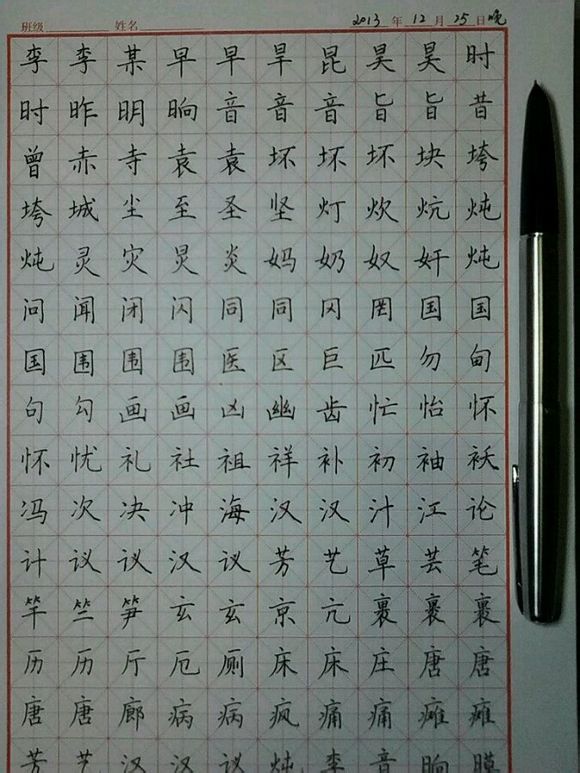 班级 姓名 2013年12月25日晚
李李某早早旱昆昊昊时
时昨明晌音音音旨旨昔
曾赤寺袁袁坏坏坏块垮
垮城尘至圣坚灯炊炕炖
炖灵灾炅炎妈奶奴奸炖
问闻闭闪同同冈罔国国
国围围围医区巨匹勿甸
句勾画画凶幽齿忙怡怀
怀忧礼社祖祥补初袖袄
冯次决冲海汉汉汁江论
计议议汉议芳艺草芸笔
竿竺笋玄玄京亢裹裹裹
历历厅厄厕床床庄唐唐
唐唐廊病病疯痛痛瘫瘫
芳艺汉汉议炖李音晌膜